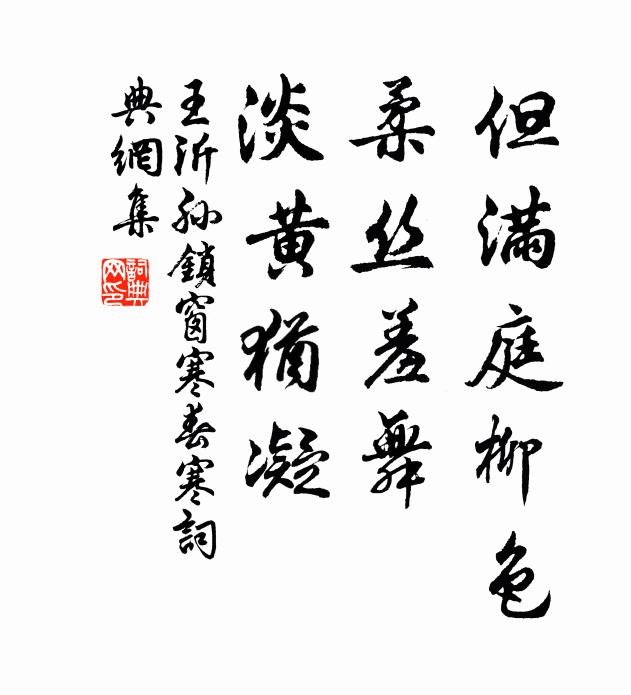 但滿庭柳色
柔丝羞舞
淡黄猶凝
王沂孙鎖窗寒春寒詞
典網集
詞典
网印